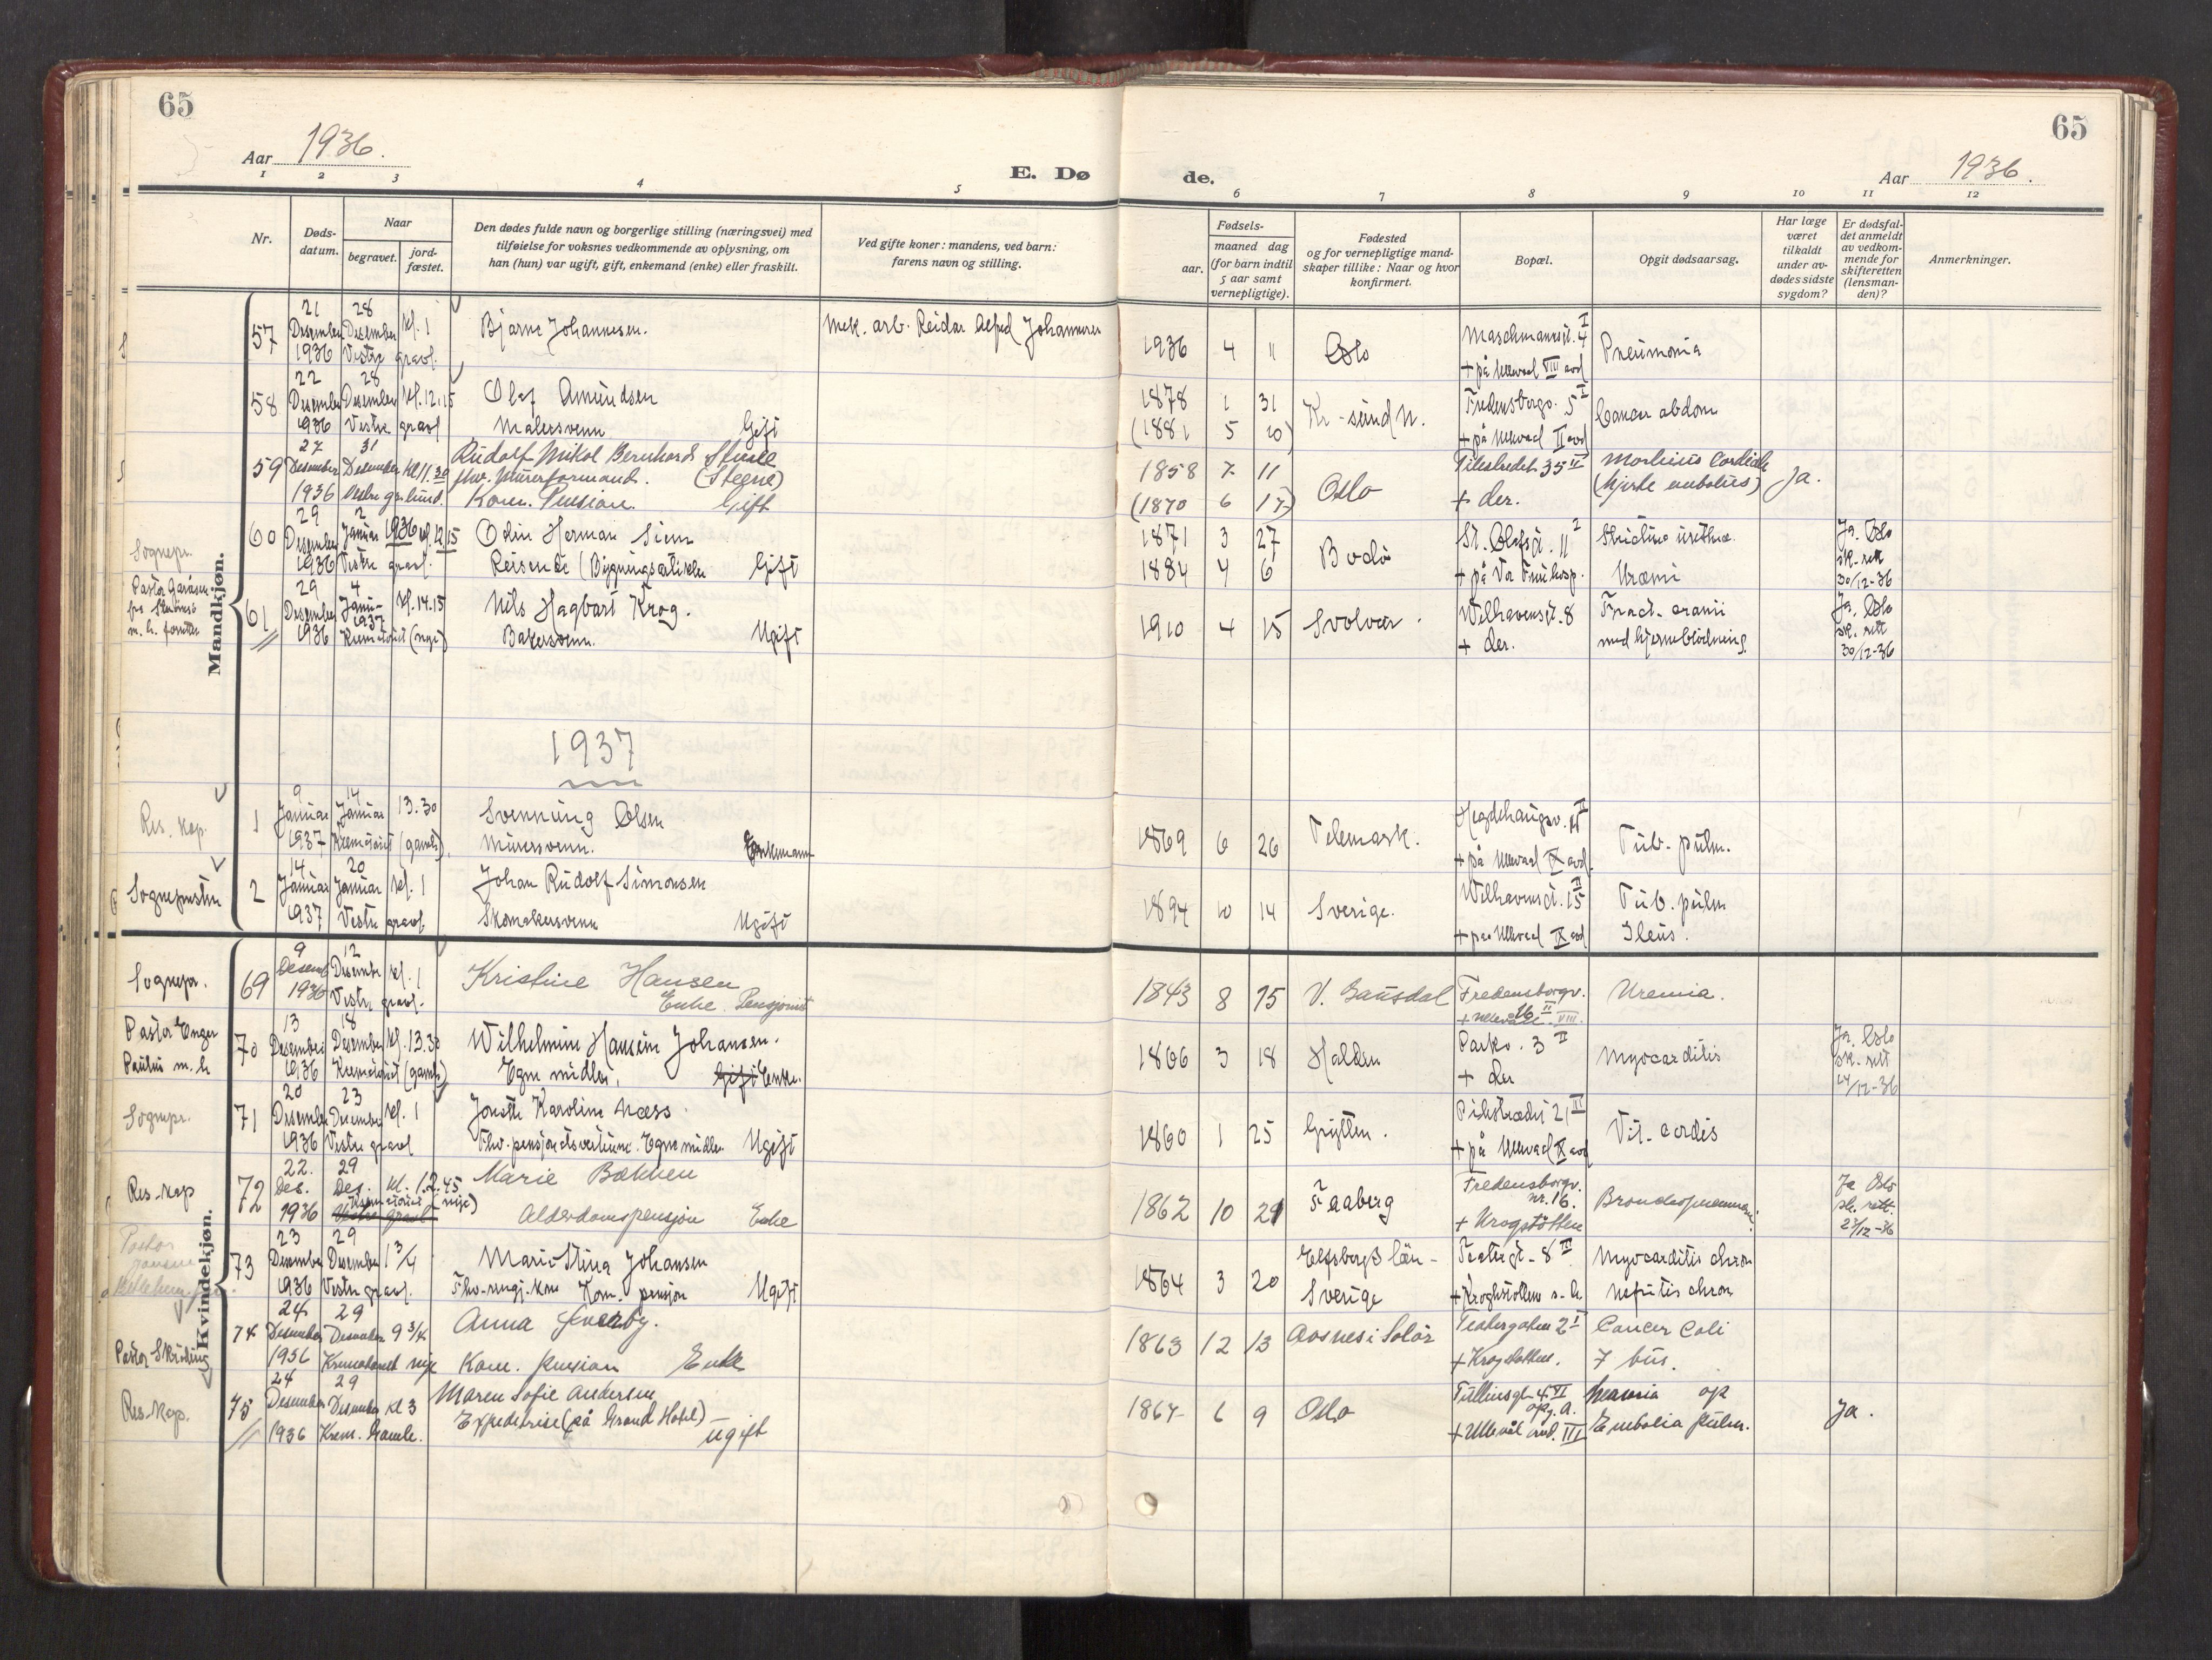 65
65
Aar 1936.
E. Dø
de.
Aar 1936.
1 2 3 4 5 6 7 8 9 10 11 12
Nr.
Døds-
datum.
Naar
begravet.
jord-
fæstet.
Den dødes fulde navn og borgerlige stilling (næringsvei) med
tilføielse for voksnes vedkommende av oplysning, om
han (hun) var ugift, gift, enkemand (enke) eller fraskilt.
Ved gifte koner: mandens, ved barn:
farens navn og stilling.
Fødsels-
aar.
maaned dag
(for barn indtil
5 aar samt
vernepligtige).
Fødested
og for vernepligtige mand-
skaper tillike: Naar og hvor
konfirmert.
Bopæl.
Opgit dødsaarsag.
Har læge
været
tilkaldt
under av-
dødes sidste
sygdom?
Er dødsfal-
det anmeldt
av vedkom-
mende for
skifteretten
(lensman-
den)?
Anmerkninger.
Mandkjøn.
21 28
57 Desember Desember kl. 1 Bjarne Johannesen. Mek. arb. Reidar Alfred Johannesen
1936 Vestre gravl.
1936 4 11 Oslo
I
4
+ på Ullevaal VIII avd
Pneumonia
22 28
58 Desember Desember kl. 12.15 Olaf Amundsen
1936 Vestre gravl Malersvenn Gift
1878 1 31 Kr-sund N. Fredensborgv. 5 I Cancer abdom
(1881 5 20) + på Ullevaal II avd
27 31
59 Desember Desember kl 11.30 Rudolf Mikal Bernhard
1936 Vestre gr. lund. fhv. Murerformand. (Steene)
Kom. Pension. Gift
1858 7 11 Oslo Pilestredet 35 II Morbus Cordis Ja.
(1870 6 17) + der. (hjerte embolus)
29 2
60 Desember Januar 1936 kl. 12.15 Odin Herman Siem
1936 Vestre gravl. Reisende (Bygningsartikler Gift
1871 3 27 Bodø St. Olafsgt. 11 2 Ja. Oslo
1884 4 6 + på Vor Fruehosp. Uræmi sk. rett
30/12-36
Sognepr.
29 4
61 Desember Janu- kl. 14.15 Nils Hagbart Krog.
1937
1936 Krematoriet (nye) Bakersvenn. Ugift
1910 4 15 Svolvær. Welhavensgt. 8 Fract. cranii Ja. Oslo
+ der. med hjerneblødning. sk. rett
30/12-36
1937
9 14
Res. kap. 1 Januar Januar 13.30 Svennung Olsen
1937 Krematoriet (gamle). Murersvenn. Enkemann
1869 6 26 Telemark. Tub. pulm.
+ på Ullevaal IX avd.
14 20
Sognepresten 2 Januar Januar kl. 1 Johan Rudolf Simonsen
1937 Vestre gravl. Skomakersvenn Ugift
1894 10 14 Sverige. Welhavensgt. 15 II Tub. pulm
+ paa Ullevaal IX avd Ileus.
Kvindekjøn.
9 12
Sognepr. 69 Desemb Desember kl. 1 Kristine Hansen
1936 Vestre gravl. Enke. Pensjonist
1843 8 15 V. Gausdal Fredensborgv. Uremia.
16 II
13 18
Pastor Enger 70 Desember Desember kl. 13.30 Wilhelmine Hansine Johansen.
1936 Krematoriet (gamle) Egne midler. Gift Enke.
1866 3 18 Halden Parkv. 3 II Myocarditis Ja. Oslo
+ der sk. rett
14/12-36
20 23
Sognepr. 71 Desember Desember kl. 1 Jonette Karoline Næss.
1936 Vestre gravl Fhv. pensjonatsvertinne. Egne midler. Ugift
1860 1 25 Grytten. Pilestrædet 21 III Vit. cordis
+ på Ullevaal X avd
22. 29
Res-kap 72 Des. Des. kl. 12.45 Marie Bækken
Krematoriet (nye)
1936 Vestre gravl Alderdomspensjon Enke
1862 10 29 Faaberg Fredensborgv. Ja Oslo
nr. 16. sk. rett.
+ Krogstøtten 27/12-36
23 29
Pastor
73 Desember Desember 1 3/4 Marie-Stina Johansen
1936 Vestre gravl. Fhv. rengj.kone Kom. pensjon Ugift
1864 3 20 Elfsborgs län- Teatergt. 8 III Myocarditis chron
Sverige + Kroghstøttens s.h. Nefritis chron
24 29
74 Desember Desember 9 3/4 Anna
1936 Krematoriet nye Kom. pension Enke
1863 12 13 Aasnes i Solør Teatergaten 2 I Cancer Coli
+ Krogstøtten.
24 29
Res-kap. 75 Desember Desember kl 3 Maren Sofie Andersen
1936 Krem. Gamle. Expeditrise (på Grand Hotel) -
ugift
1867 6 9 Oslo Tullinsgt. 4 VI op
opg. A. Ja.
+ Ullevål avd. III Embolia pulm.